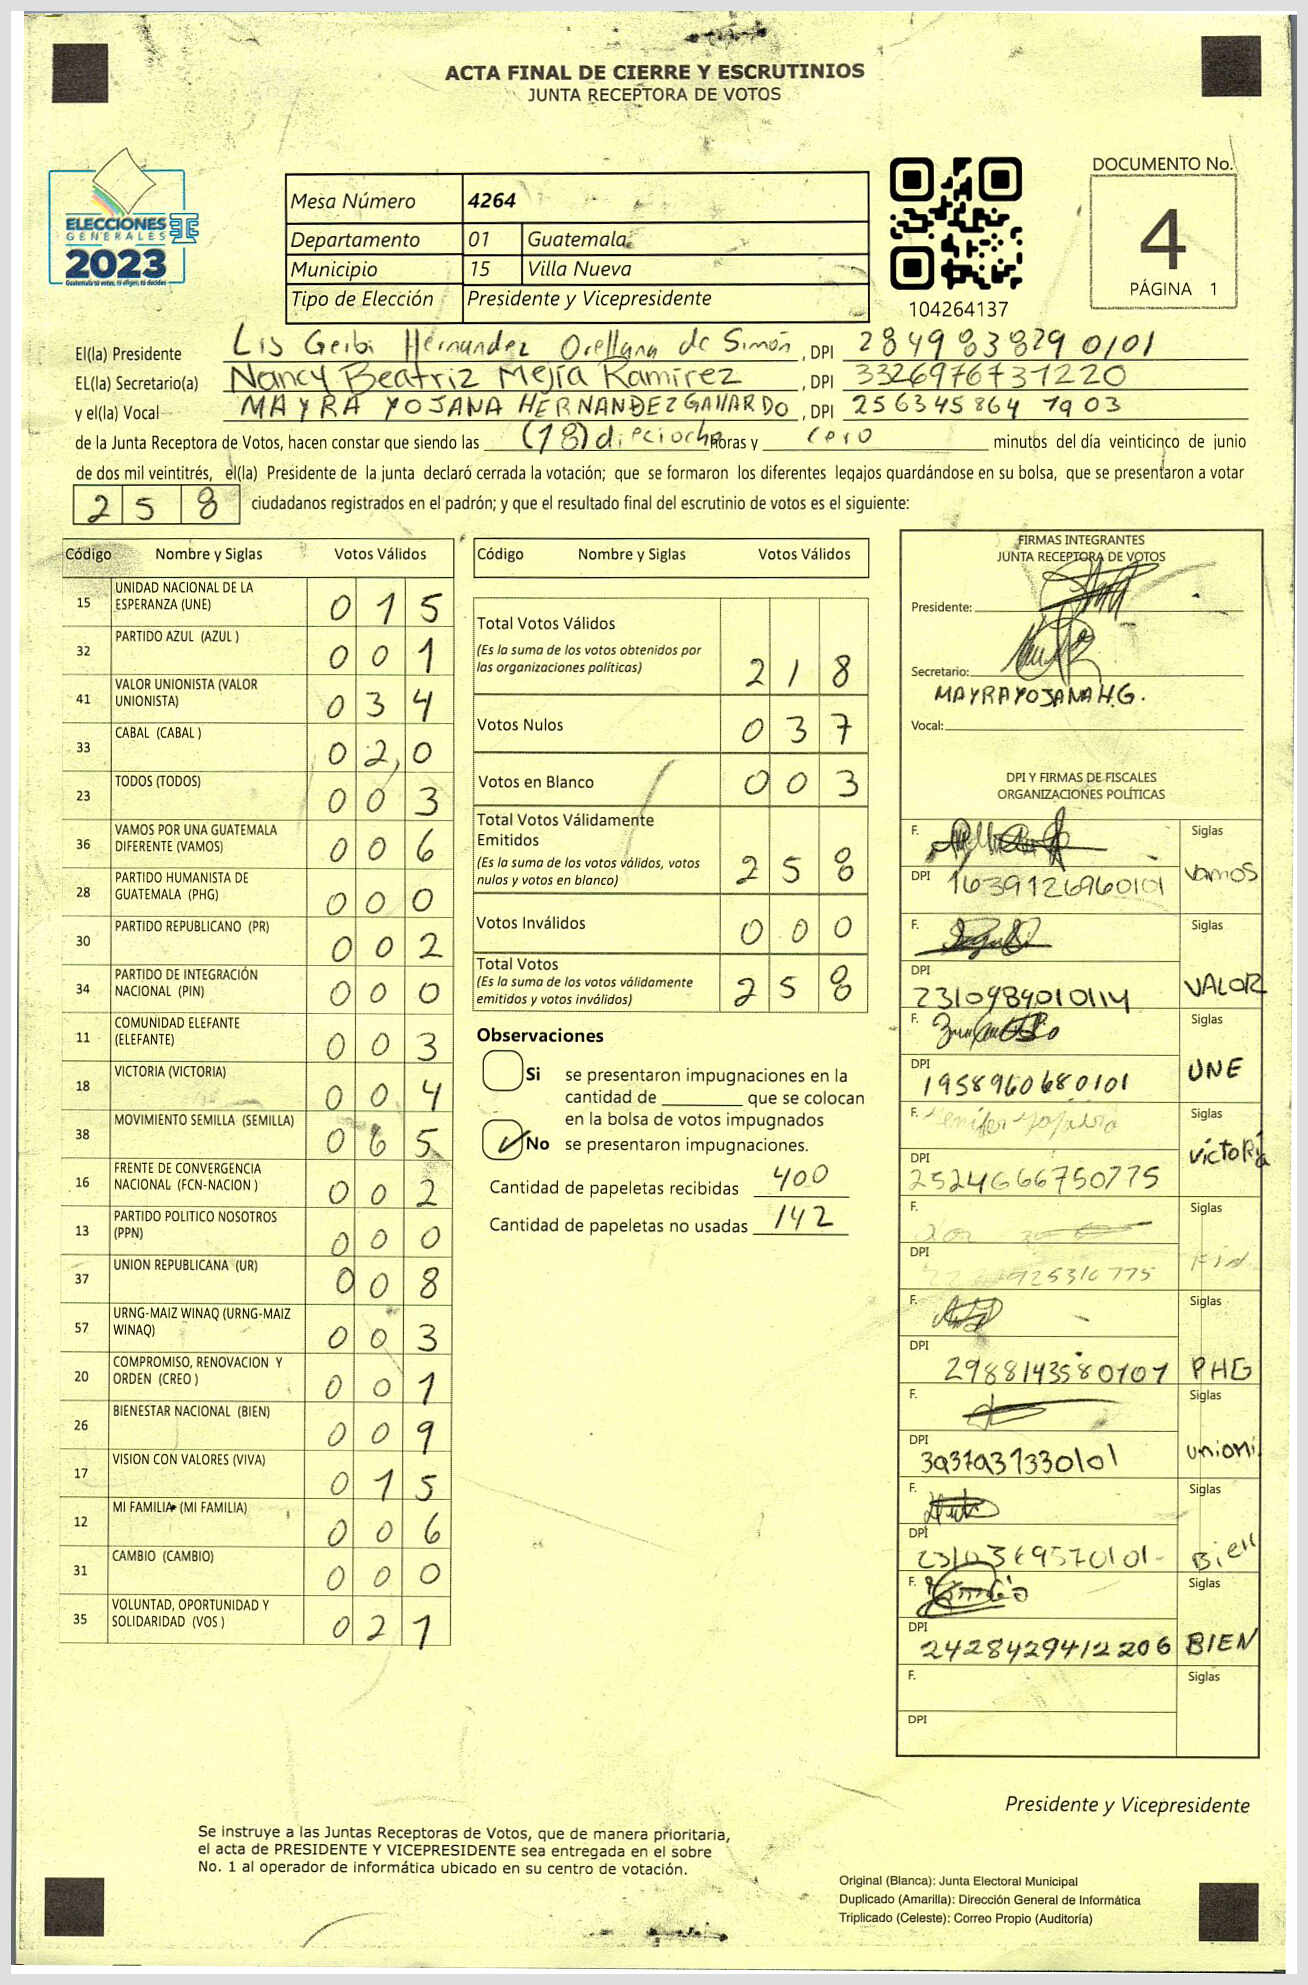 ACTA FINAL DE CIERRE Y ESCRUTINIOS
JUNTA RECEPTORA DE VOTOS
ELECCIONES
GENERALES
2023
Guatemala tú votas, tú eliges, tú decides
Mesa Número 4264
Departamento 01 Guatemala
Municipio 15 Villa Nueva
Tipo de Elección Presidente y Vicepresidente
104264137
DOCUMENTO No.
4
PÁGINA 1
El(la) Presidente Lis Geibi Hernandez Orellana de Simón, DPI 2849838290101
EL(la) Secretario(a) Nancy Beatriz Mejía Ramirez, DPI 3326976731220
y el(la) Vocal MAYRA YOJANA HERNANDEZ GALLARDO, DPI 256345864 1903
de la Junta Receptora de Votos, hacen constar que siendo las (18) dieciocho horas y cero minutos del día veinticinco de junio
de dos mil veintitrés, el(la) Presidente de la junta declaró cerrada la votación; que se formaron los diferentes legajos guardándose en su bolsa, que se presentaron a votar
258 ciudadanos registrados en el padrón; y que el resultado final del escrutinio de votos es el siguiente:
Código Nombre y Siglas Votos Válidos
15 UNIDAD NACIONAL DE LA ESPERANZA (UNE) 015
32 PARTIDO AZUL (AZUL ) 001
41 VALOR UNIONISTA (VALOR UNIONISTA) 034
33 CABAL (CABAL ) 02,0
23 TODOS (TODOS) 003
36 VAMOS POR UNA GUATEMALA DIFERENTE (VAMOS) 006
28 PARTIDO HUMANISTA DE GUATEMALA (PHG) 000
30 PARTIDO REPUBLICANO (PR) 002
34 PARTIDO DE INTEGRACIÓN NACIONAL (PIN) 000
11 COMUNIDAD ELEFANTE (ELEFANTE) 003
18 VICTORIA (VICTORIA) 004
38 MOVIMIENTO SEMILLA (SEMILLA) 065
16 FRENTE DE CONVERGENCIA NACIONAL (FCN-NACION ) 002
13 PARTIDO POLITICO NOSOTROS (PPN) 000
37 UNION REPUBLICANA (UR) 008
57 URNG-MAIZ WINAQ (URNG-MAIZ WINAQ) 003
20 COMPROMISO, RENOVACION Y ORDEN (CREO ) 001
26 BIENESTAR NACIONAL (BIEN) 009
17 VISION CON VALORES (VIVA) 015
12 MI FAMILIA (MI FAMILIA) 006
31 CAMBIO (CAMBIO) 000
35 VOLUNTAD, OPORTUNIDAD Y SOLIDARIDAD (VOS ) 021
Código Nombre y Siglas Votos Válidos
Total Votos Válidos
(Es la suma de los votos obtenidos por
las organizaciones políticas) 218
Votos Nulos 037
Votos en Blanco 003
Total Votos Válidamente
Emitidos
(Es la suma de los votos válidos, votos
nulos y votos en blanco) 258
Votos Inválidos 000
Total Votos
(Es la suma de los votos válidamente
emitidos y votos inválidos) 258
Observaciones
Si se presentaron impugnaciones en la
cantidad de ________ que se colocan
en la bolsa de votos impugnados
No se presentaron impugnaciones.
Cantidad de papeletas recibidas 400
Cantidad de papeletas no usadas 142
FIRMAS INTEGRANTES
JUNTA RECEPTORA DE VOTOS
Presidente:
Secretario:
MAYRA YOJANA H.G.
Vocal:
DPI Y FIRMAS DE FISCALES
ORGANIZACIONES POLÍTICAS
F. Siglas
DPI 1639126960101 Vamos
F. Siglas
DPI 2310984010114 VALOR
F. Siglas
DPI 1958960680101 UNE
F. Siglas
DPI 2524666750775 victoria
F. Siglas
DPI
F. Siglas
DPI 2988143580101 PHG
F. Siglas
DPI 3037031330101 unioni
F. Siglas
DPI 2310369570101- Bien
F. Siglas
DPI 2428429412206 BIEN
F. Siglas
DPI
Presidente y Vicepresidente
Se instruye a las Juntas Receptoras de Votos, que de manera prioritaria,
el acta de PRESIDENTE Y VICEPRESIDENTE sea entregada en el sobre
No. 1 al operador de informática ubicado en su centro de votación.
Original (Blanca): Junta Electoral Municipal
Duplicado (Amarilla): Dirección General de Informática
Triplicado (Celeste): Correo Propio (Auditoría)